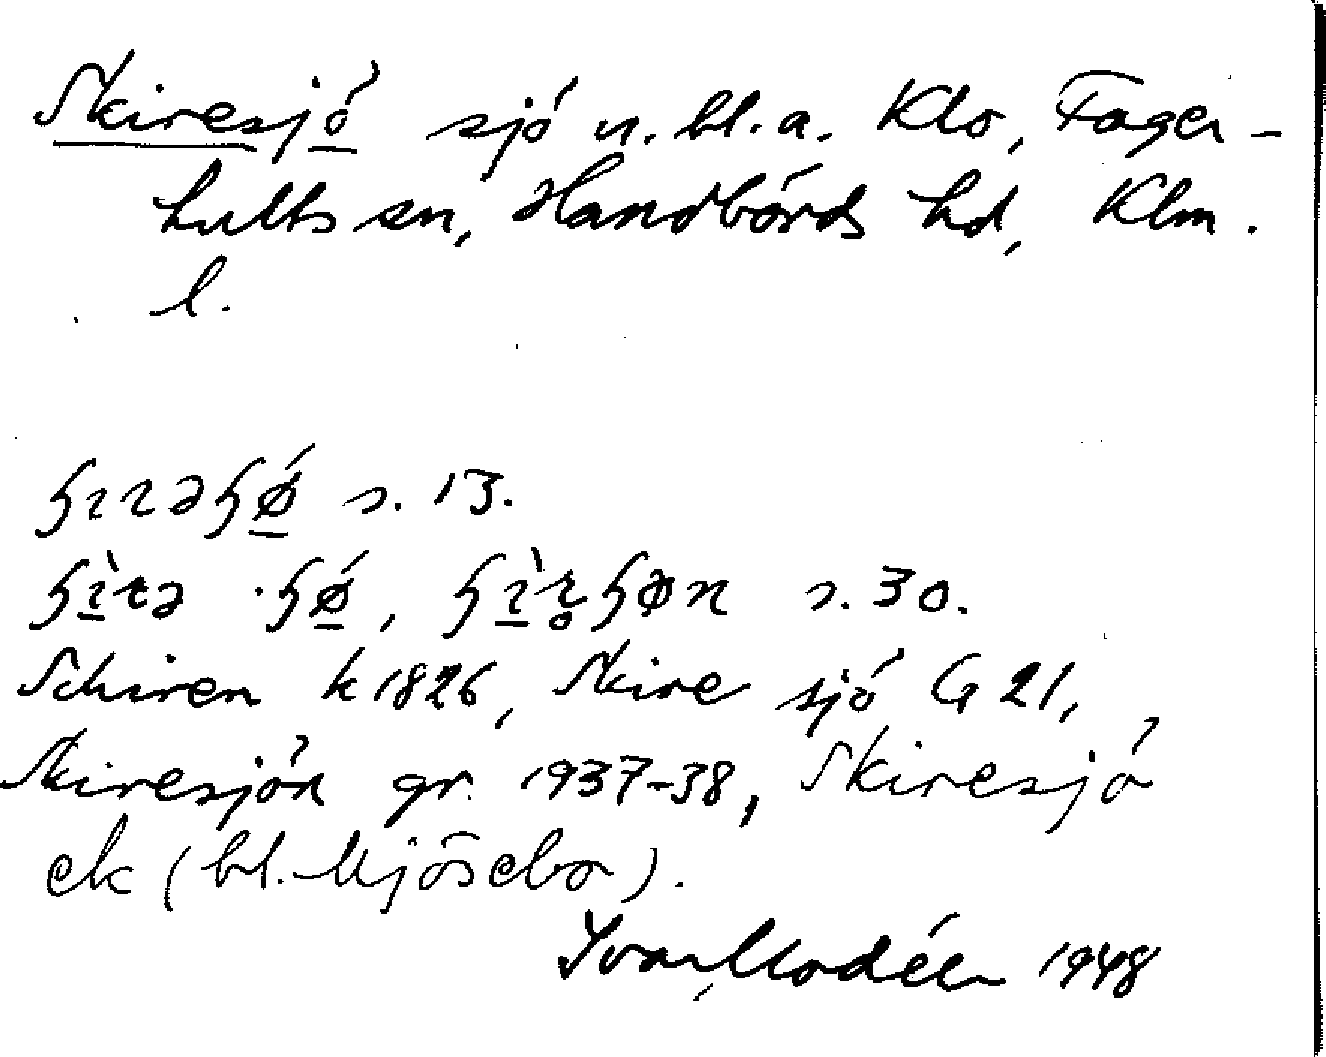 Skiresjö sjö n. bl.a. Klo, Fager-
hults sn, Handbörds hd, Klm.
l.
s. 13.
s. 30.
Schiren k 1826, Skire sjö G 21,
Skiresjön gr. 1937-38, Skiresjö
ek (bl. Mjösebo).
Ivar Modéer 1948